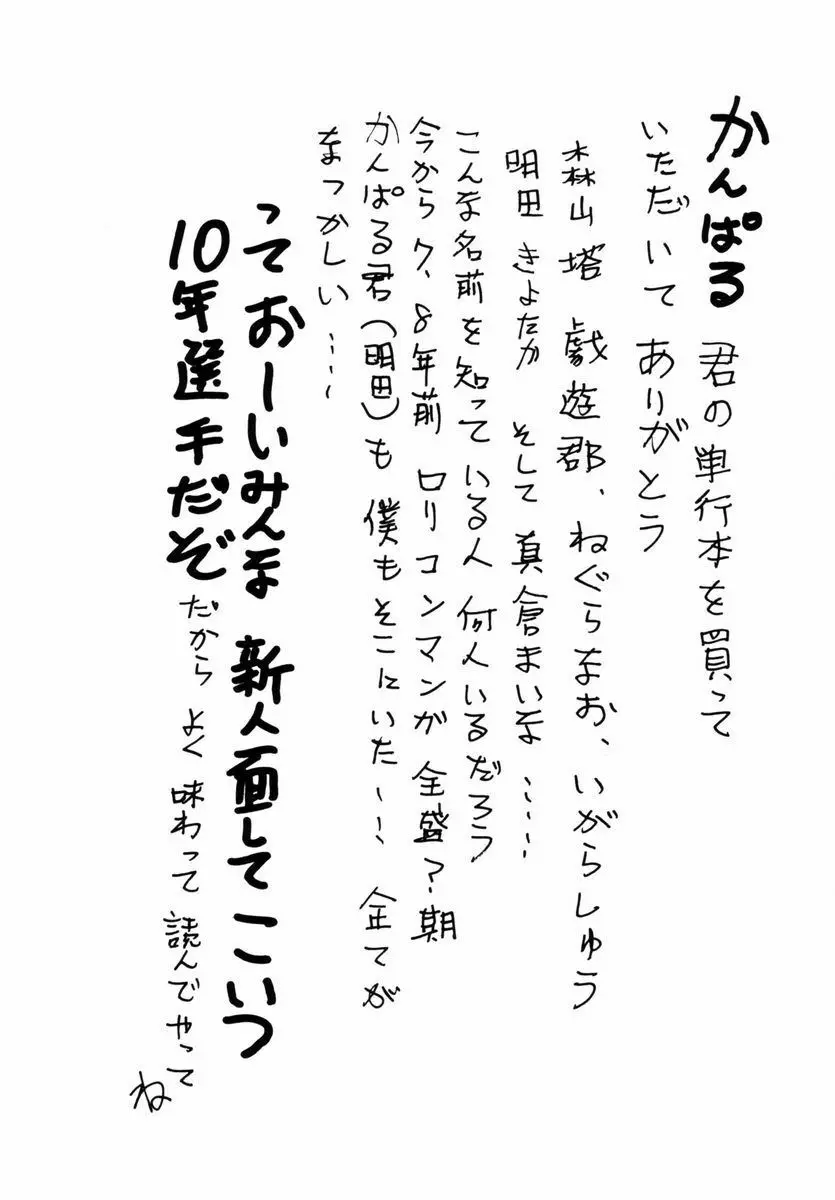 かんぱる君の単行本を買って
いただいて ありがとう
森山塔 戯遊郡、ねぐらなお、いがらしゅう
明田きよたか そして 真倉まいな・・・・
こんな名前を知っている人 何人いるだろう
今から7、8年前 ロリコンマンガ全盛?期
かんぱる君(明田)も 僕もそこにいた・・・ 全てが
なつかしい・・・・
って おーいみんな 新人面して こいつ
10年選手だぞ だから よく 味わって 読んでやって
ね